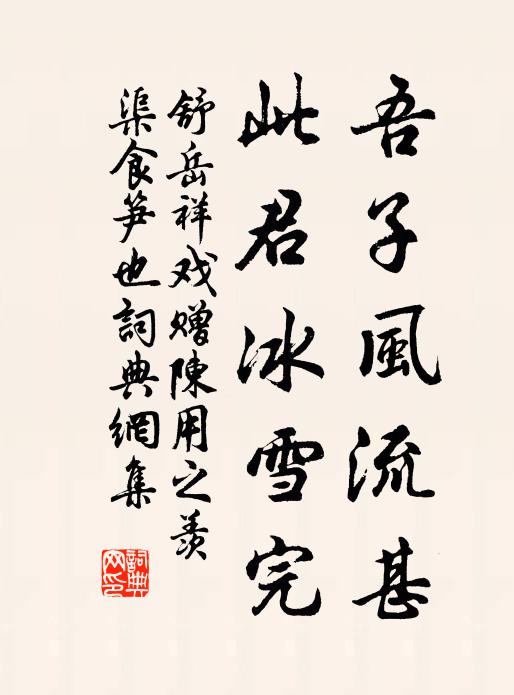 吾子風流甚
此君冰雪完
舒岳祥戏赠陳用之羨
渠食笋也詞典網集
詞典網印